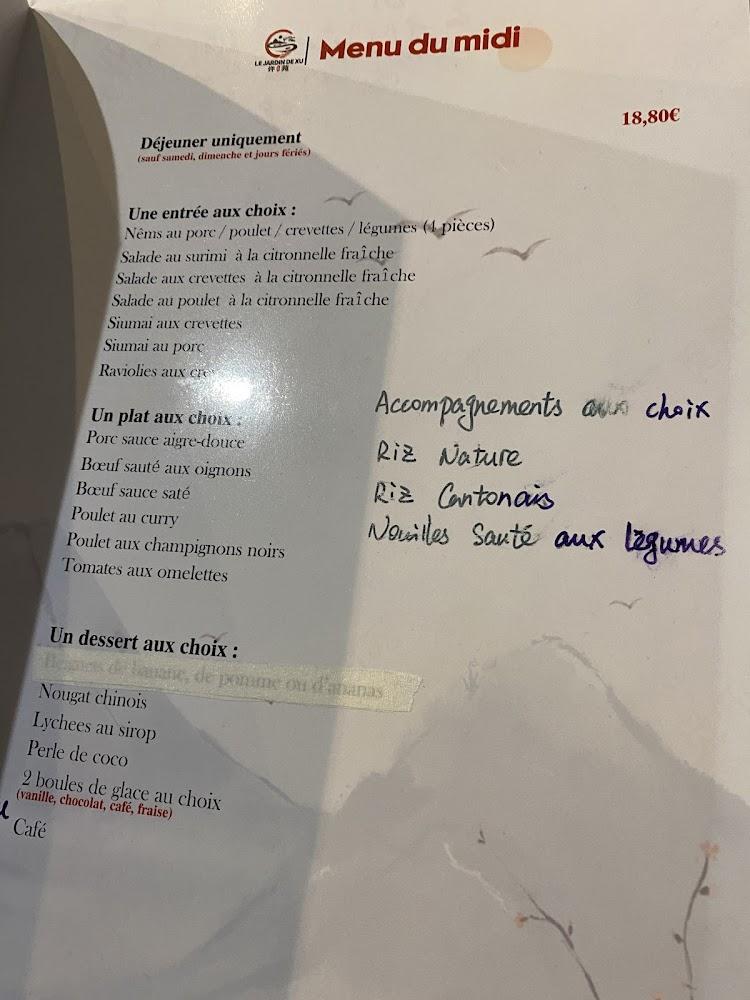 LE JARDIN DE XU
Menu du midi
18,80€
Déjeuner uniquement
(sauf samedi, dimanche et jours fériés)
Une entrée aux choix :
Nêms au porc / poulet / crevettes / légumes (4 pièces)
Salade au surimi à la citronnelle fraîche
Salade aux crevettes à la citronnelle fraîche
Salade au poulet à la citronnelle fraîche
Siumai aux crevettes
Siumai au porc
Raviolies aux
Un plat aux choix :
Porc sauce aigre-douce
Bœuf sauté aux oignons
Bœuf sauce saté
Poulet au curry
Poulet aux champignons noirs
Tomates aux omelettes
Accompagnements aux choix
Riz Nature
Riz Cantonais
Nouilles Sauté aux légumes
Un dessert aux choix :
Beignets de banane, de pomme ou d'ananas
Nougat chinois
Lychees au sirop
Perle de coco
2 boules de glace au choix
(vanille, chocolat, café, fraise)
Café